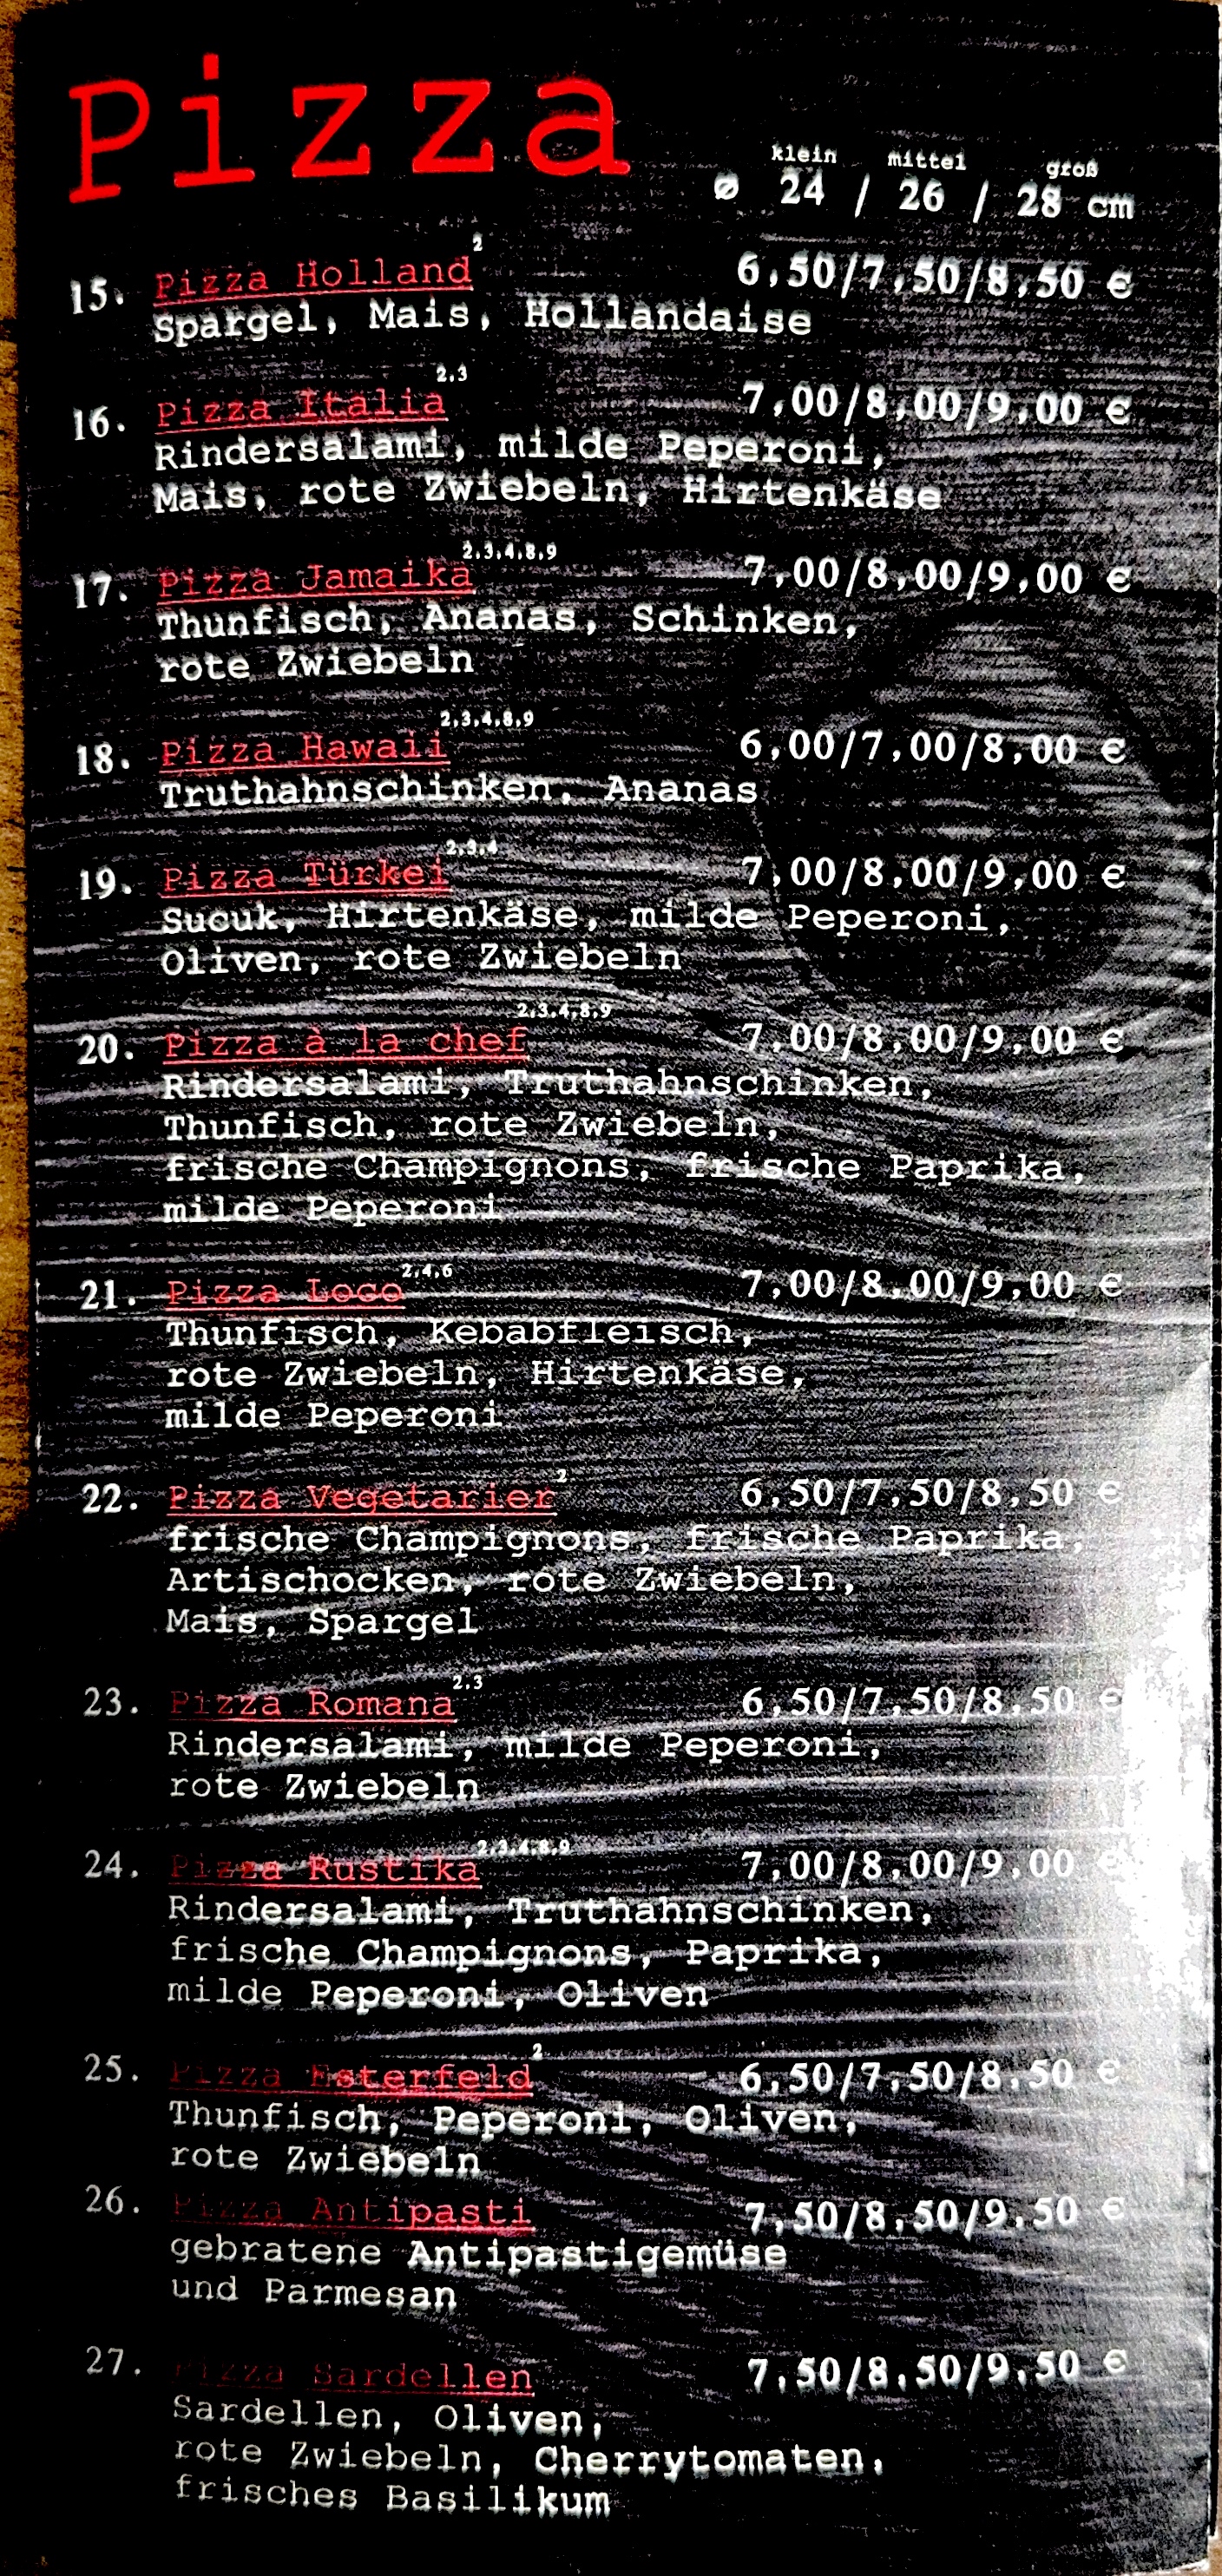 Pizza
klein mittel groß
ø 24 / 26 / 28 cm
15. Pizza Holland 2 6,50/7,50/8,50 €
Spargel, Mais, Hollandaise
16. Pizza Italia 2,3 7,00/8,00/9,00 €
Rindersalami, milde Peperoni,
Mais, rote Zwiebeln, Hirtenkäse
17. Pizza Jamaika 2,3,4,8,9 7,00/8,00/9,00 €
Thunfisch, Ananas, Schinken,
rote Zwiebeln
18. Pizza Hawaii 2,3,4,8,9 6,00/7,00/8,00 €
Truthahnschinken, Ananas
19. Pizza Türkei 2,3,4 7,00/8,00/9,00 €
Sucuk, Hirtenkäse, milde Peperoni,
Oliven, rote Zwiebeln
20. Pizza à la chef 2,3,4,8,9 7,00/8,00/9,00 €
Rindersalami, Truthahnschinken,
Thunfisch, rote Zwiebeln,
frische Champignons, frische Paprika,
milde Peperoni
21. Pizza Loco 2,4,6 7,00/8,00/9,00 €
Thunfisch, Kebabfleisch,
rote Zwiebeln, Hirtenkäse,
milde Peperoni
22. Pizza Vegetarier 2 6,50/7,50/8,50 €
frische Champignons, frische Paprika,
Artischocken, rote Zwiebeln,
Mais, Spargel
23. Pizza Romana 2,3 6,50/7,50/8,50 €
Rindersalami, milde Peperoni,
rote Zwiebeln
24. Pizza Rustika 2,3,4,8,9 7,00/8,00/9,00 €
Rindersalami, Truthahnschinken,
frische Champignons, Paprika,
milde Peperoni, Oliven
25. Pizza Esterfeld 2 6,50/7,50/8,50 €
Thunfisch, Peperoni, Oliven,
rote Zwiebeln
26. Pizza Antipasti 7,50/8,50/9,50 €
gebratene Antipastigemüse
und Parmesan
27. Pizza Sardellen 7,50/8,50/9,50 €
Sardellen, Oliven,
rote Zwiebeln, Cherrytomaten,
frisches Basilikum